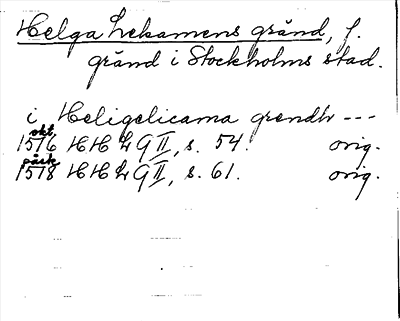 Helga Lekamens gränd, f.
gränd i Stockholms stad.
i Heligelicama grendh ---
okt.
1576 HH L G II, s. 54. orig.
påsk
1578 HH L G II, s. 61. orig.